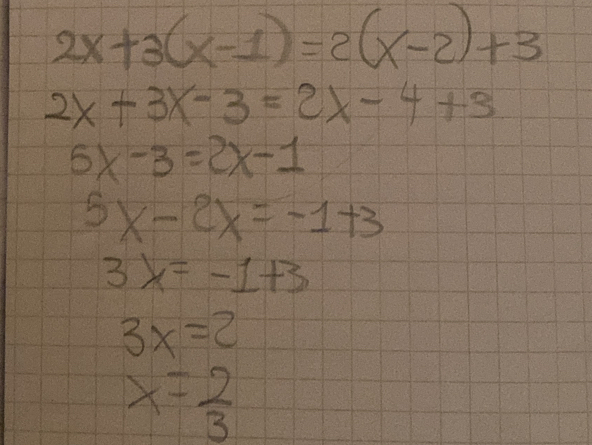 2x+3(x-1)=2(x-2)+3
2x+3x-3=2x-4+3
5x-3=2x-1
5x-2x=-1+3
3x=-1+3
3x=2
x=2/3